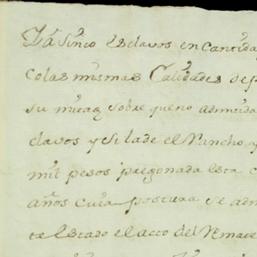 Ya sinco esclavos en cantida
colas mismas Calidades se
su mitad sobre que no admitida
clavos y si la de el Rancho y
mil pesos pregonada esta
años cuia postura se adm
te estado el acto del Remate